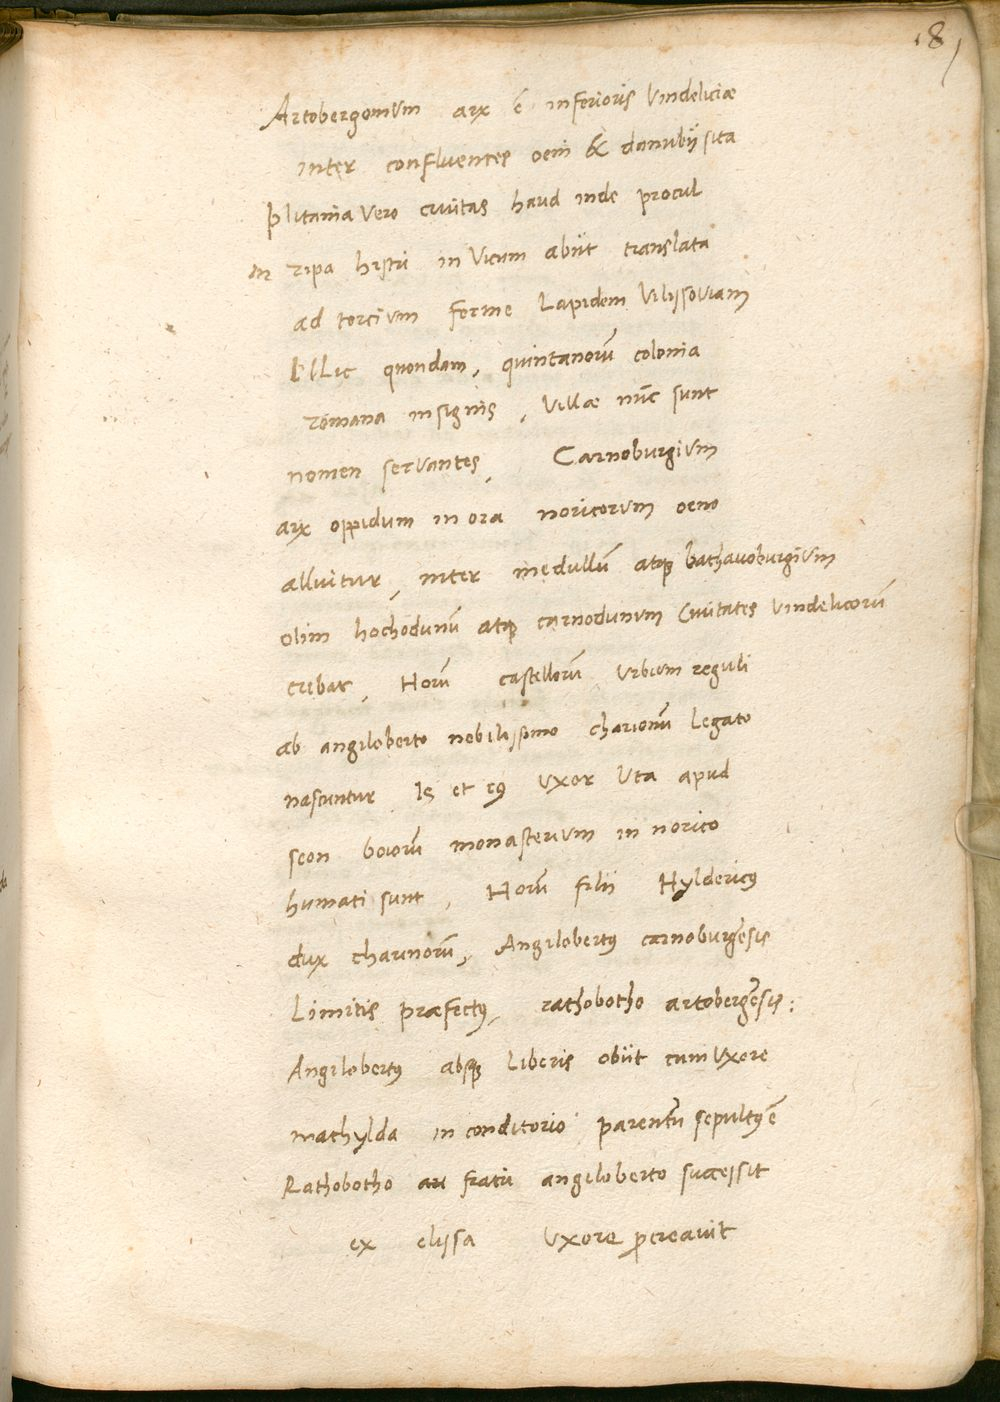 18
Artobergomum arx ē inferioris Vindeliciæ
inter confluentes oeni & danubij sita
plitania vero civitas haud inde procul
In ripa histri in vicum abiit translata
ad tercium ferme Lapidem Vilissoviam
Illic quondam, quintanorū colonia
romana insignis, Villæ nūc sunt
nomen servantes, Carnoburgium
arx oppidum in ora noricorum oeno
alluitur, inter medullū atqꝫ bathavoburgium
olim hochodunū atqꝫ carnodunum Civitates vindelicorū
erebat, Horū castellorū urbium reguli
ab angiloberto nobilissimo charionū Legato
nascuntur Is et eꝰ Uxor Uta apud
seon boiorū monasterium in norico
humati sunt, Horū filii Hyldericꝰ
dux charinorū, Angilobertꝰ carnoburgēsis
Limitis præfectꝰ, rathobotho artobergēsis:
Angilobertꝰ absqꝫ Liberis obiit cum Uxore
mathylda in conditorio parentū sepultꝰ ē
Rathobotho fratri angiloberto successit
ex elissa Uxore ꝓcreavit